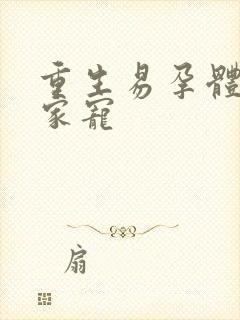 重生易孕體
家寵
扇